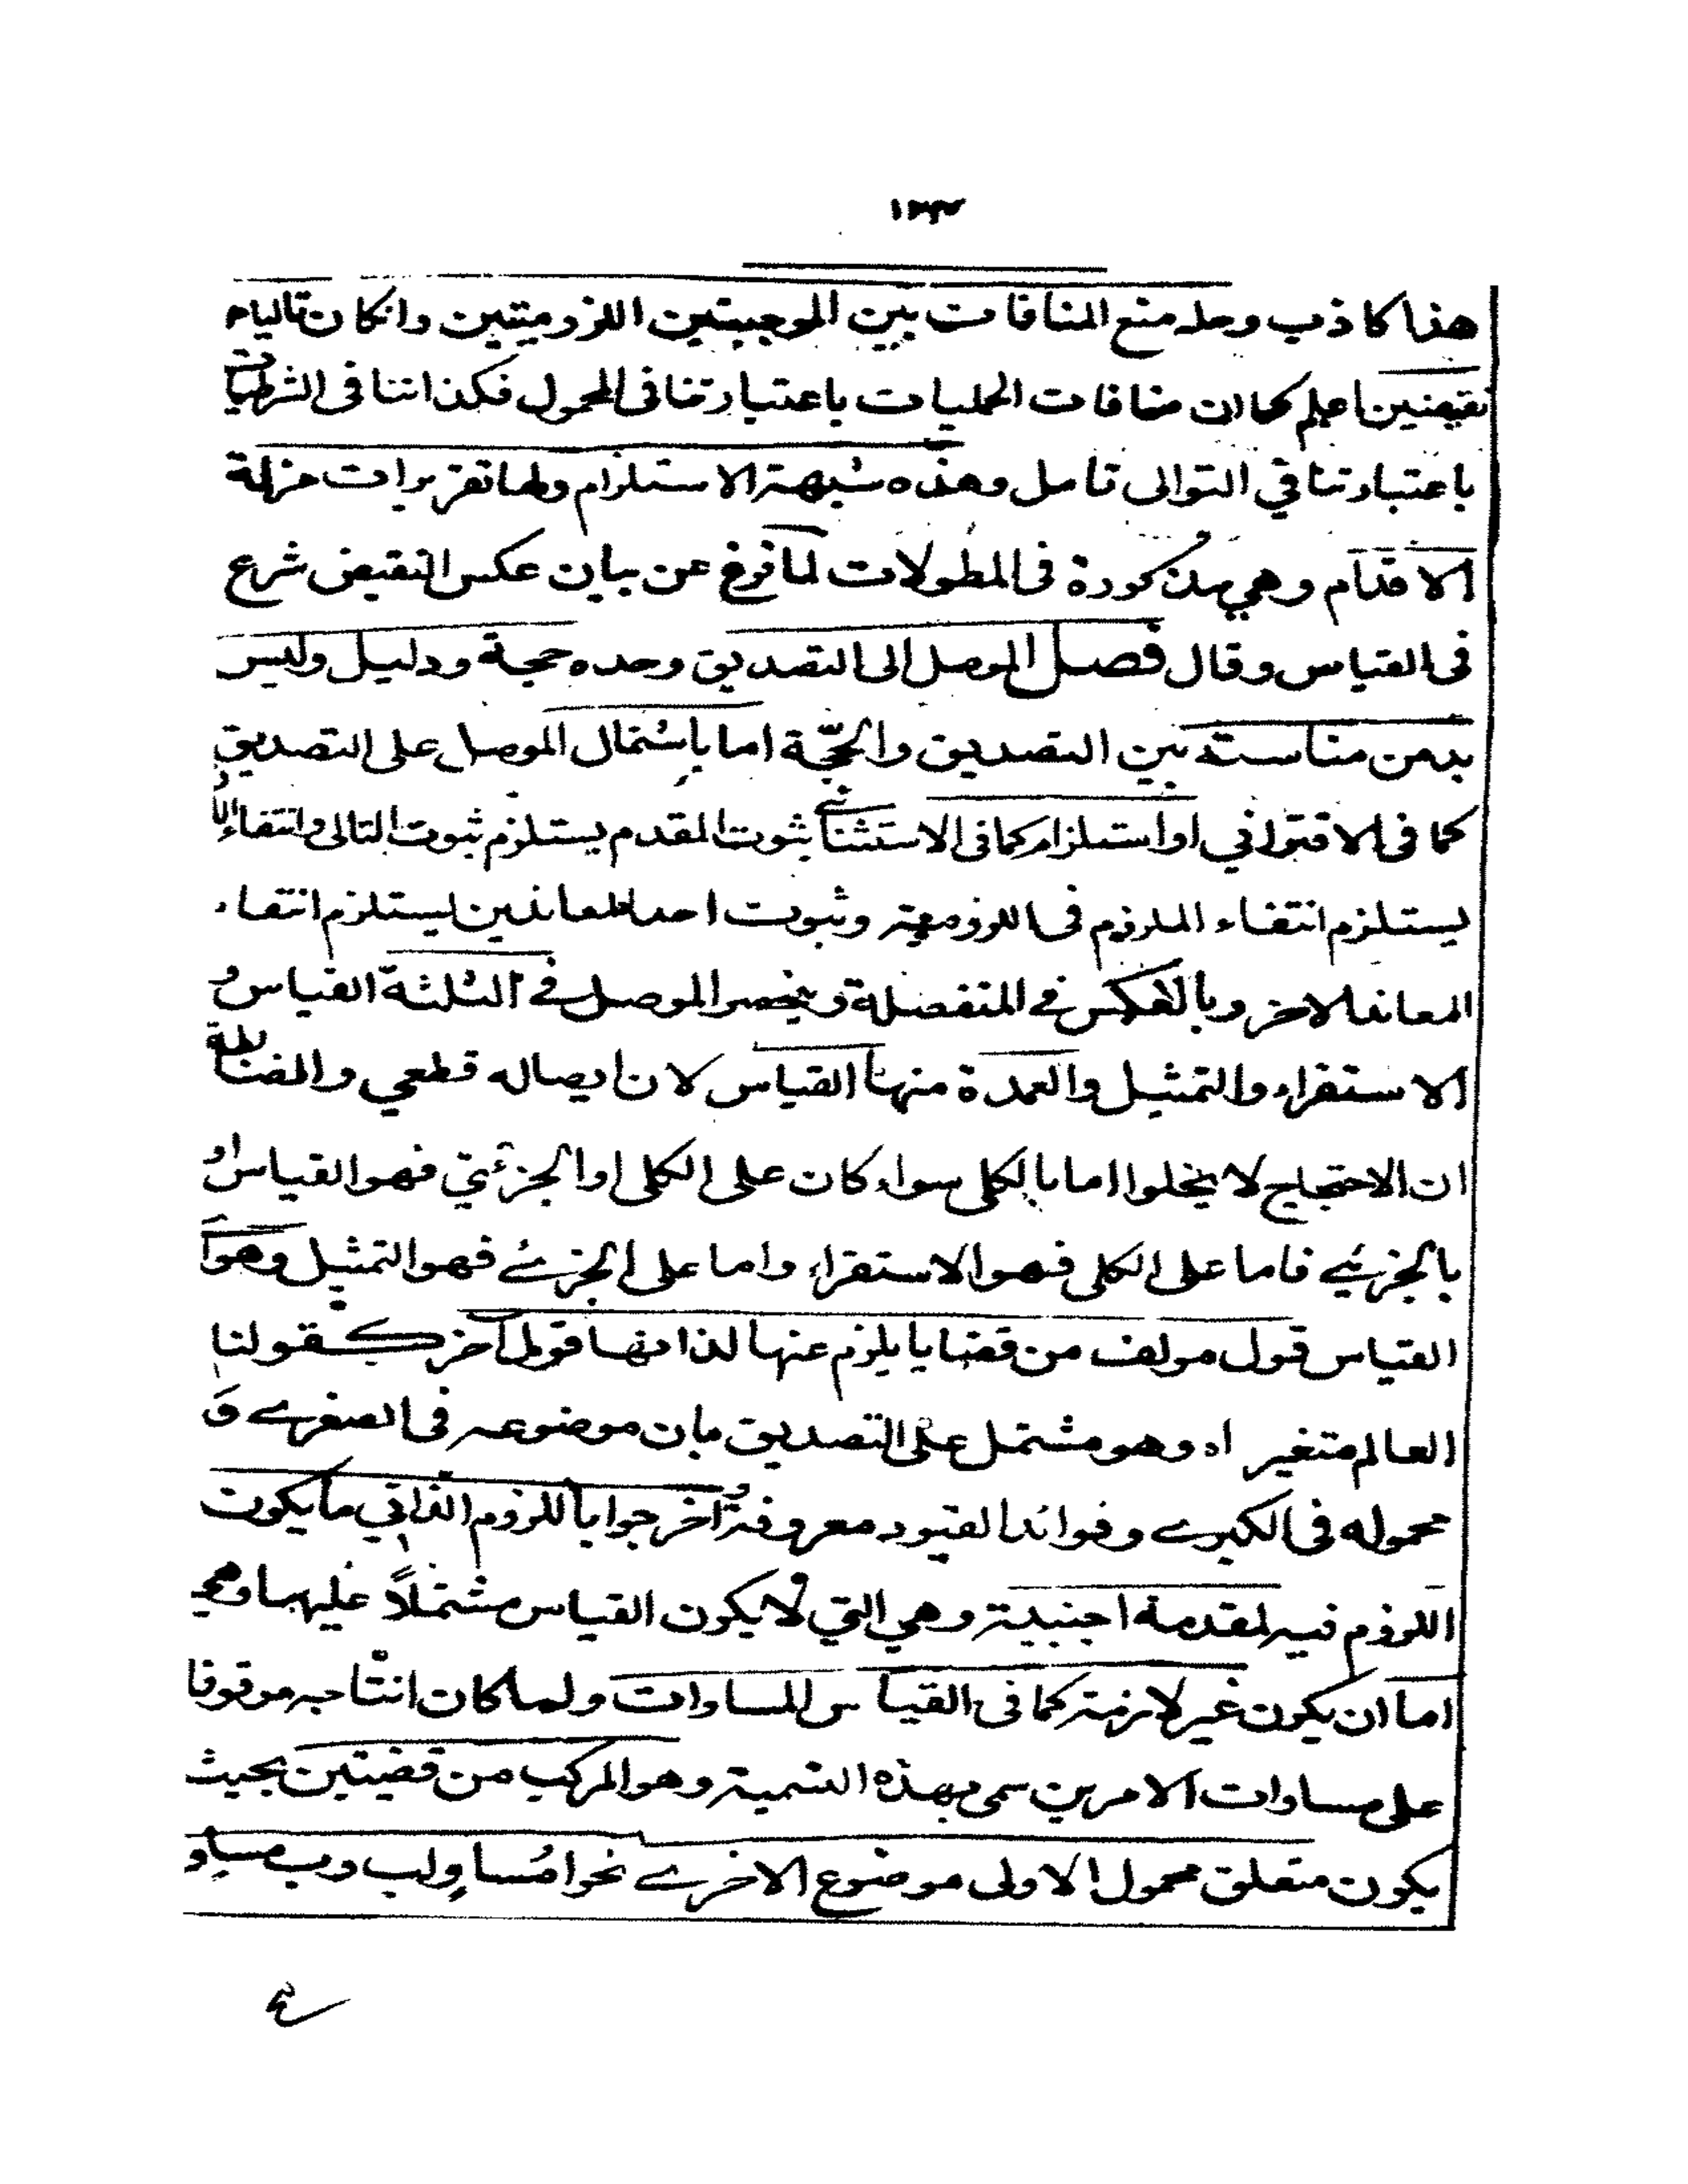 هذا كاذب وحله منع المنافات بين الموجبتين اللزوميتين وانكان تالياه
نقيضين اعلم كما ان منافات الحمليات باعتبار تنافى المحمول فكذا تنافى الشرطيات
باعتبار تنافي التوالى تامل وهذه شبهة الاستلزام ولها تقريرات مزلة
الاقدام وهي مذكورة فى المطولات لما فرغ عن بيان عكس النقيض شرع
فى القياس وقال فصل الموصل الى التصديق وحده حجة ودليل وليس
بد من مناسبة بين التصديق والحجّة اما باشتمال الموصل على التصديق
كما فى الاقتراني او استلزام كما فى الاستثنائى ثبوت المقدم يستلزم ثبوت التالى وانتفاء
يستلزم انتفاء الملزوم فى اللزومية وثبوت احد المعاندين يستلزم انتفاء
المعاند الاخر وبالعكس فے المنفصلة وينحصر الموصل فے الثلثة القياس و
الاستقراء والتمثيل والعمدة منها القياس لان ايصاله قطعي والضابطة
ان الاحتجاج لا يخلوا اما بالكلى سواء كان على الكلى او الجزئي فهو القياس او
بالجزئے فاما على الكلى فهو الاستقراء واما على الجزئے فهو التمثيل وهو ا
القياس قول مولف من قضايا يلزم عنها لذاتها قول اخر كقولنا
العالم متغير اه وهو مشتمل على التصديق بان موضوعه فى الصغرے و
محموله فى الكبرے وفوائد القيود معروفة اخر جوا باللزوم الذاتي ما يكون
اللزوم فيه لمقدمة اجنبية وهي التي لا يكون القياس مشتملاً عليها وهى
اما ان يكون غير لازمة كما فى القياس المساوات ولما كان انتاجه موقوفا
على مساوات الامرين سمى بهذه التسمية وهو المركب من قضيتين بحيث
يكون متعلق محمول الاولى موضوع الاخرے نحو ا مُساوٍ لب وب مساوٍ